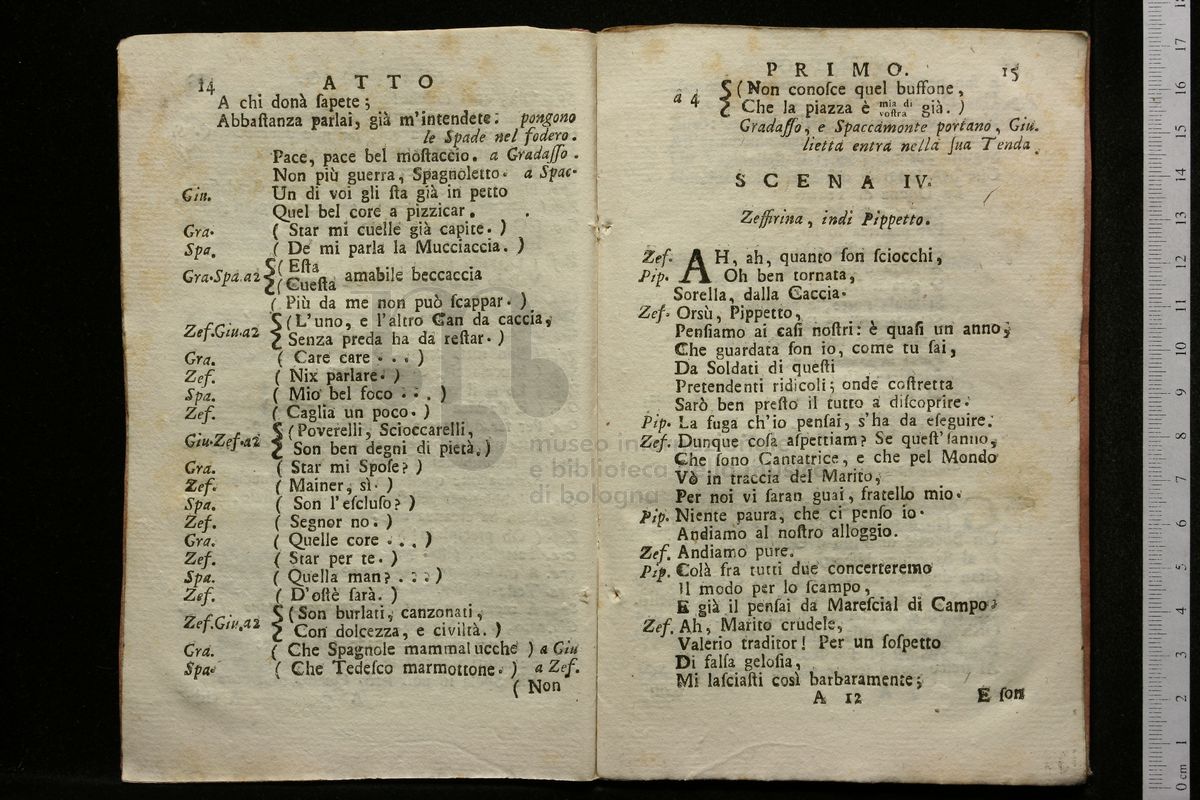 14 ATTO
A chi donà ſapete;
Abbaſtanza parlai, già m'intendete: pongono
le Spade nel fodero.
Pace, pace bel moſtaccio. a Gradaſſo.
Non più guerra, Spagnoletto. a Spac.
Giu. Un di voi gli ſta già in petto
Quel bel core a pizzicar.
Gra. ( Star mi cuelle già capite. )
Spa. ( De mi parla la Mucciaccia. )
Gra.Spa.a2 ( Eſta
( Cueſta amabile beccaccia
( Più da me non può ſcappar. )
Zef.Giu.a2 ( L'uno, e l'altro Can da caccia,
Senza preda ha da reſtar. )
Gra. ( Care care . . . )
Zef. ( Nix parlare. )
Spa. ( Mio bel foco . . . )
Zef. ( Caglia un poco. )
Giu.Zef.a2 ( Poverelli, Scioccarelli,
Son ben degni di pietà. )
Gra. ( Star mi Spoſe? )
Zef. ( Mainer, sì. )
Spa. ( Son l'eſcluſo? )
Zef. ( Segnor no. )
Gra. ( Quelle core . . . )
Zef. ( Star per te. )
Spa. ( Quella man? . . . )
Zef. ( D'oſtè ſarà. )
Zef.Giu.a2 ( Son burlati, canzonati,
Con dolcezza, e civiltà. )
Gra. ( Che Spagnole mammalucche ) a Giu
Spa. ( Che Tedeſco marmottone. ) a Zef.
( Non
PRIMO. 15
a 4 ( Non conoſce quel buffone,
Che la piazza è mia di vostra già. )
Gradaſſo, e Spaccamonte portano, Giu.
lietta entra nella ſua Tenda.
SCENA IV.
Zeffirina, indi Pippetto.
Zef. AH, ah, quanto ſon ſciocchi,
Pip. Oh ben tornata,
Sorella, dalla Caccia.
Zef. Orsù, Pippetto,
Penſiamo ai caſi noſtri: è quaſi un anno,
Che guardata ſon io, come tu ſai,
Da Soldati di queſti
Pretendenti ridicoli; onde coſtretta
Sarò ben preſto il tutto a diſcoprire.
Pip. La fuga ch'io penſai, s'ha da eſeguire.
Zef. Dunque coſa aſpettiam? Se queſt' ſanno,
Che ſono Cantatrice, e che pel Mondo
Vò in traccia del Marito,
Per noi vi ſaran guai, fratello mio.
Pip. Niente paura, che ci penſo io.
Andiamo al noſtro alloggio.
Zef. Andiamo pure.
Pip. Colà fra tutti due concerteremo
Il modo per lo ſcampo,
E già il penſai da Mareſcial di Campo.
Zef. Ah, Marito crudele,
Valerio traditor! Per un ſoſpetto
Di falſa geloſia,
Mi laſciaſti così barbaramente;
A 12 E ſon